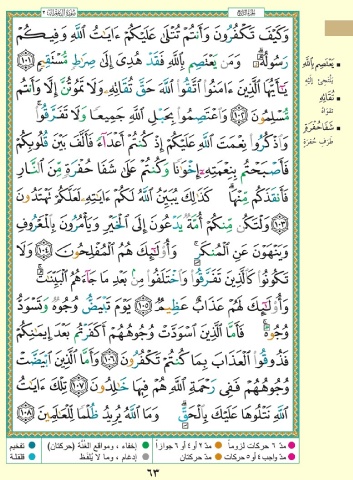 سورة آل عمران ٣
الجزء الرابع
وَكَيْفَ تَكْفُرُونَ وَأَنتُمْ تُتْلَىٰ عَلَيْكُمْ ءَايَٰتُ ٱللَّهِ وَفِيكُمْ
رَسُولُهُۥ ۗ وَمَن يَعْتَصِم بِٱللَّهِ فَقَدْ هُدِىَ إِلَىٰ صِرَٰطٍ مُّسْتَقِيمٍ ١٠١
يَٰٓأَيُّهَا ٱلَّذِينَ ءَامَنُوا۟ ٱتَّقُوا۟ ٱللَّهَ حَقَّ تُقَاتِهِۦ وَلَا تَمُوتُنَّ إِلَّا وَأَنتُم
مُّسْلِمُونَ ١٠٢ وَٱعْتَصِمُوا۟ بِحَبْلِ ٱللَّهِ جَمِيعًا وَلَا تَفَرَّقُوا۟ ۚ
وَٱذْكُرُوا۟ نِعْمَتَ ٱللَّهِ عَلَيْكُمْ إِذْ كُنتُمْ أَعْدَآءً فَأَلَّفَ بَيْنَ قُلُوبِكُمْ
فَأَصْبَحْتُم بِنِعْمَتِهِۦٓ إِخْوَٰنًا وَكُنتُمْ عَلَىٰ شَفَا حُفْرَةٍ مِّنَ ٱلنَّارِ
فَأَنقَذَكُم مِّنْهَا ۗ كَذَٰلِكَ يُبَيِّنُ ٱللَّهُ لَكُمْ ءَايَٰتِهِۦ لَعَلَّكُمْ تَهْتَدُونَ
١٠٣ وَلْتَكُن مِّنكُمْ أُمَّةٌ يَدْعُونَ إِلَى ٱلْخَيْرِ وَيَأْمُرُونَ بِٱلْمَعْرُوفِ
وَيَنْهَوْنَ عَنِ ٱلْمُنكَرِ ۚ وَأُو۟لَٰٓئِكَ هُمُ ٱلْمُفْلِحُونَ ١٠٤ وَلَا
تَكُونُوا۟ كَٱلَّذِينَ تَفَرَّقُوا۟ وَٱخْتَلَفُوا۟ مِنۢ بَعْدِ مَا جَآءَهُمُ ٱلْبَيِّنَٰتُ ۚ
وَأُو۟لَٰٓئِكَ لَهُمْ عَذَابٌ عَظِيمٌ ١٠٥ يَوْمَ تَبْيَضُّ وُجُوهٌ وَتَسْوَدُّ
وُجُوهٌ ۚ فَأَمَّا ٱلَّذِينَ ٱسْوَدَّتْ وُجُوهُهُمْ أَكَفَرْتُم بَعْدَ إِيمَٰنِكُمْ
فَذُوقُوا۟ ٱلْعَذَابَ بِمَا كُنتُمْ تَكْفُرُونَ ١٠٦ وَأَمَّا ٱلَّذِينَ ٱبْيَضَّتْ
وُجُوهُهُمْ فَفِى رَحْمَةِ ٱللَّهِ هُمْ فِيهَا خَٰلِدُونَ ١٠٧ تِلْكَ ءَايَٰتُ
ٱللَّهِ نَتْلُوهَا عَلَيْكَ بِٱلْحَقِّ ۗ وَمَا ٱللَّهُ يُرِيدُ ظُلْمًا لِّلْعَٰلَمِينَ ١٠٨
يَعْتَصِم بِاللَّهِ
يَلْتَجِئْ إِلَيْهِ
تُقَاتِهِ
تَقْوَاهُ
شَفَا حُفْرَةٍ
طَرَفِ حُفْرَةٍ
مدّ ٦ حركات لزوماً مدّ ٢ أو ٤ أو ٦ جوازاً إخفاء، ومواقع الغنّة (حركتان) تفخيم
مدّ واجب ٤ أو ٥ حركات مدّ حركتان إدغام، وما لا يُلفظ قلقلة
٦٣